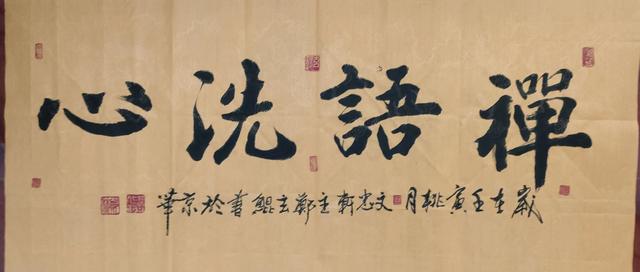 禪語洗心
歲在壬寅桃月文忠軒主鄭玄鯤書於京華